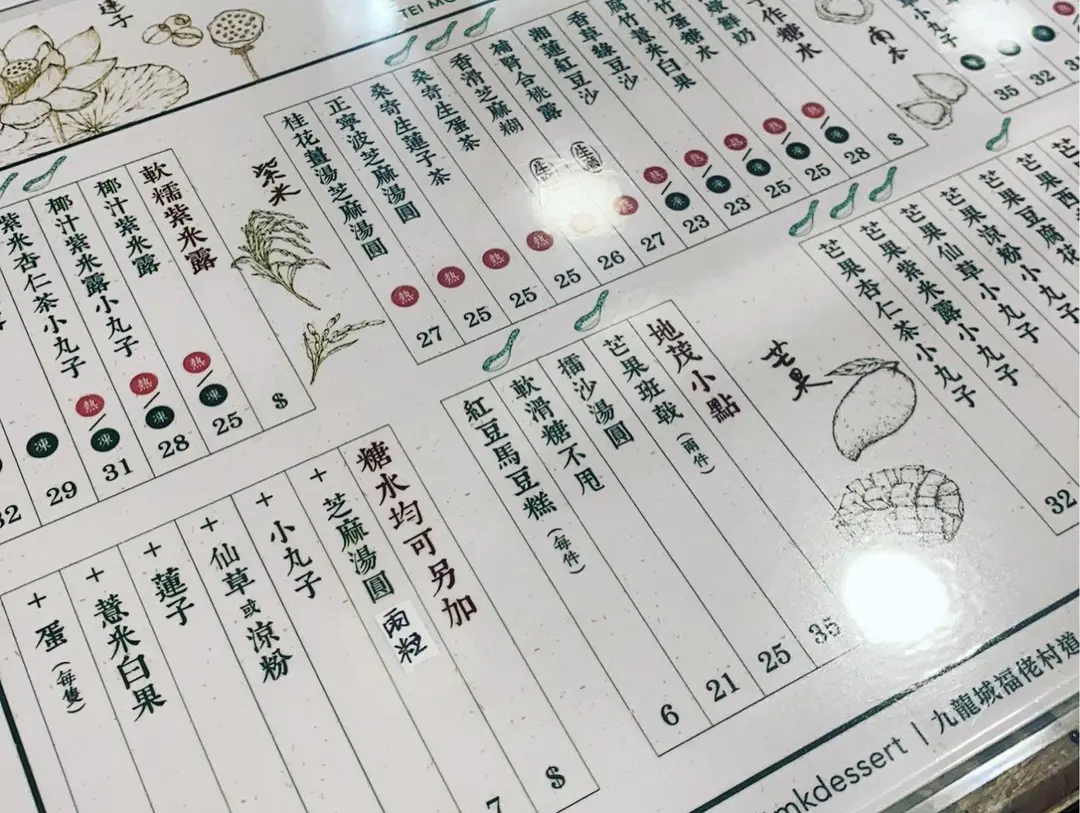 蓮子
TEI MO
南杏
小丸子
35
32
作糖水 $
鮮奶 熱/凍 28
竹蛋糖水 熱/凍 25
腐竹薏米白果 熱/凍 25
香草綠豆沙 熱/凍 23
湘蓮紅豆沙 熱/凍 23
補腎合桃露 生磨 熱/凍 27
香滑芝麻糊 生磨 熱 26
桑寄生蛋茶 25
桑寄生蓮子茶 熱 25
正寧波芝麻湯圓 熱 25
桂花薑湯芝麻湯圓 熱 27
紫米
軟糯紫米露 $
椰汁紫米露 熱/凍 25
椰汁紫米露小丸子 熱/凍 28
紫米杏仁茶小丸子 熱/凍 31
凍 29
32
芒果西
芒果豆腐花
芒果涼粉小丸子
芒果仙草小丸子
芒果紫米露小丸子
芒果杏仁茶小丸子 32
芒果
地茂小點
芒果班戟（兩件） 35
擂沙湯圓 25
軟滑糖不甩 21
紅豆馬豆糕（每件） 6
糖水均可另加 $
+ 芝麻湯圓 兩粒 7
+ 小丸子
+ 仙草或涼粉
+ 蓮子
+ 薏米白果
+ 蛋（每隻）
mkdessert | 九龍城福佬村道